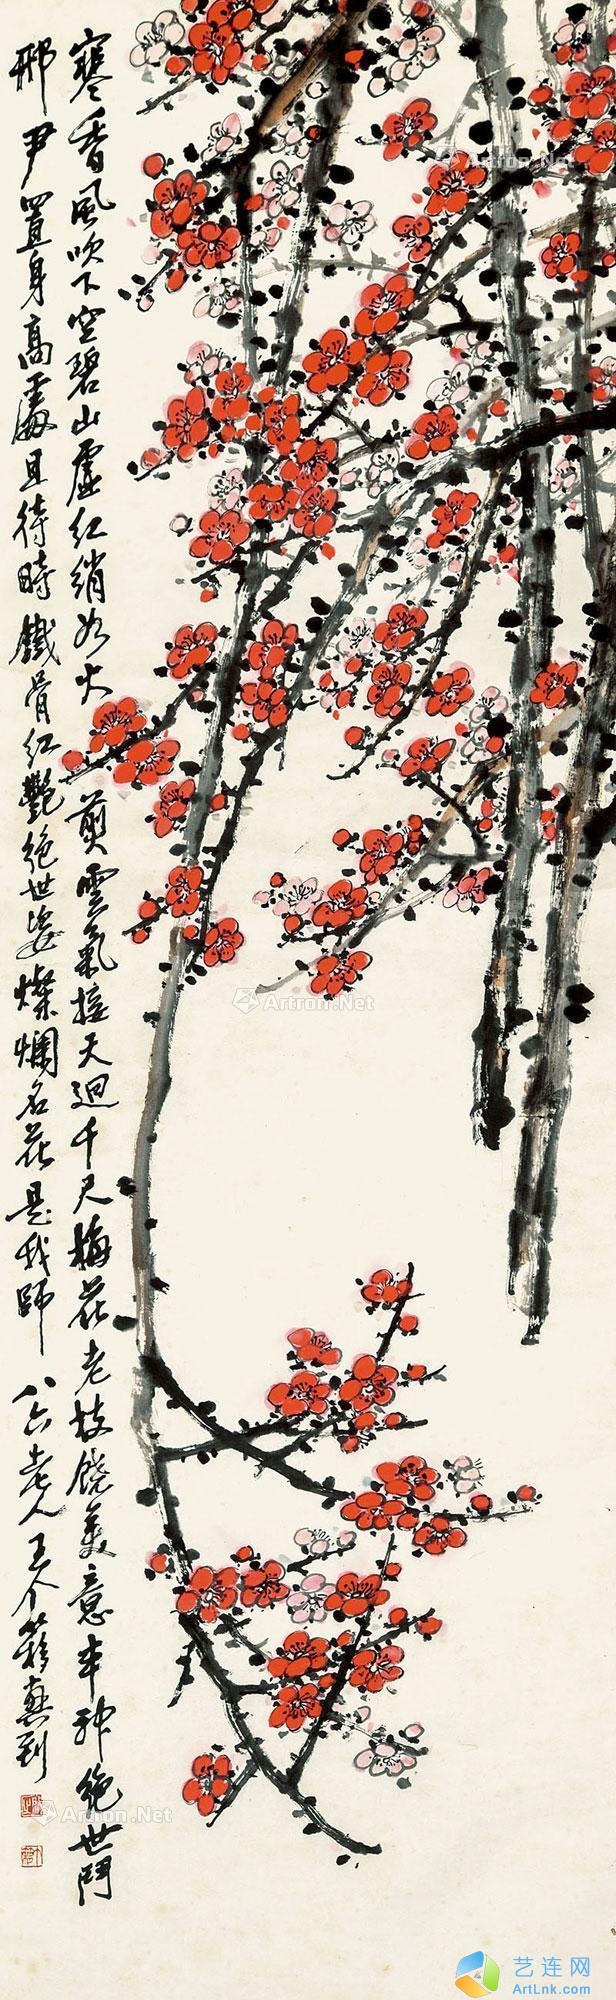 寒香风吹下空碧山虚红绡如火剪云气接天回千尺梅花老枝饶美意丰神绝世斗
邢尹置身高處且待時鐵骨红艷绝世姿燦爛名花是我師 八六老人王个簃
Artron.Net
Artron.Net
Artron.Net
Artron.Net
艺连网
ArtLnk.com